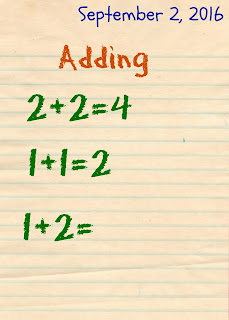 September 2, 2016
Adding
2+2=4
1+1=2
1+2=